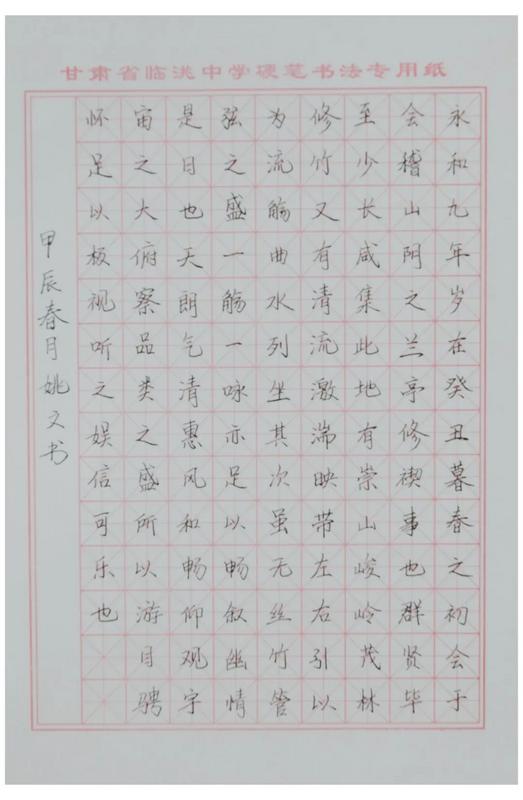 甘肃省临洮中学硬笔书法专用纸
永和九年岁在癸丑暮春之初会于
会稽山阴之兰亭修禊事也群贤毕
至少长咸集此地有崇山峻岭茂林
修竹又有清流激湍映带左右引以
为流觞曲水列坐其次虽无丝竹管
弦之盛一觞一咏亦足以畅叙幽情
是日也天朗气清惠风和畅仰观宇
宙之大俯察品类之盛所以游目骋
怀足以极视听之娱信可乐也
甲辰春月姚文书